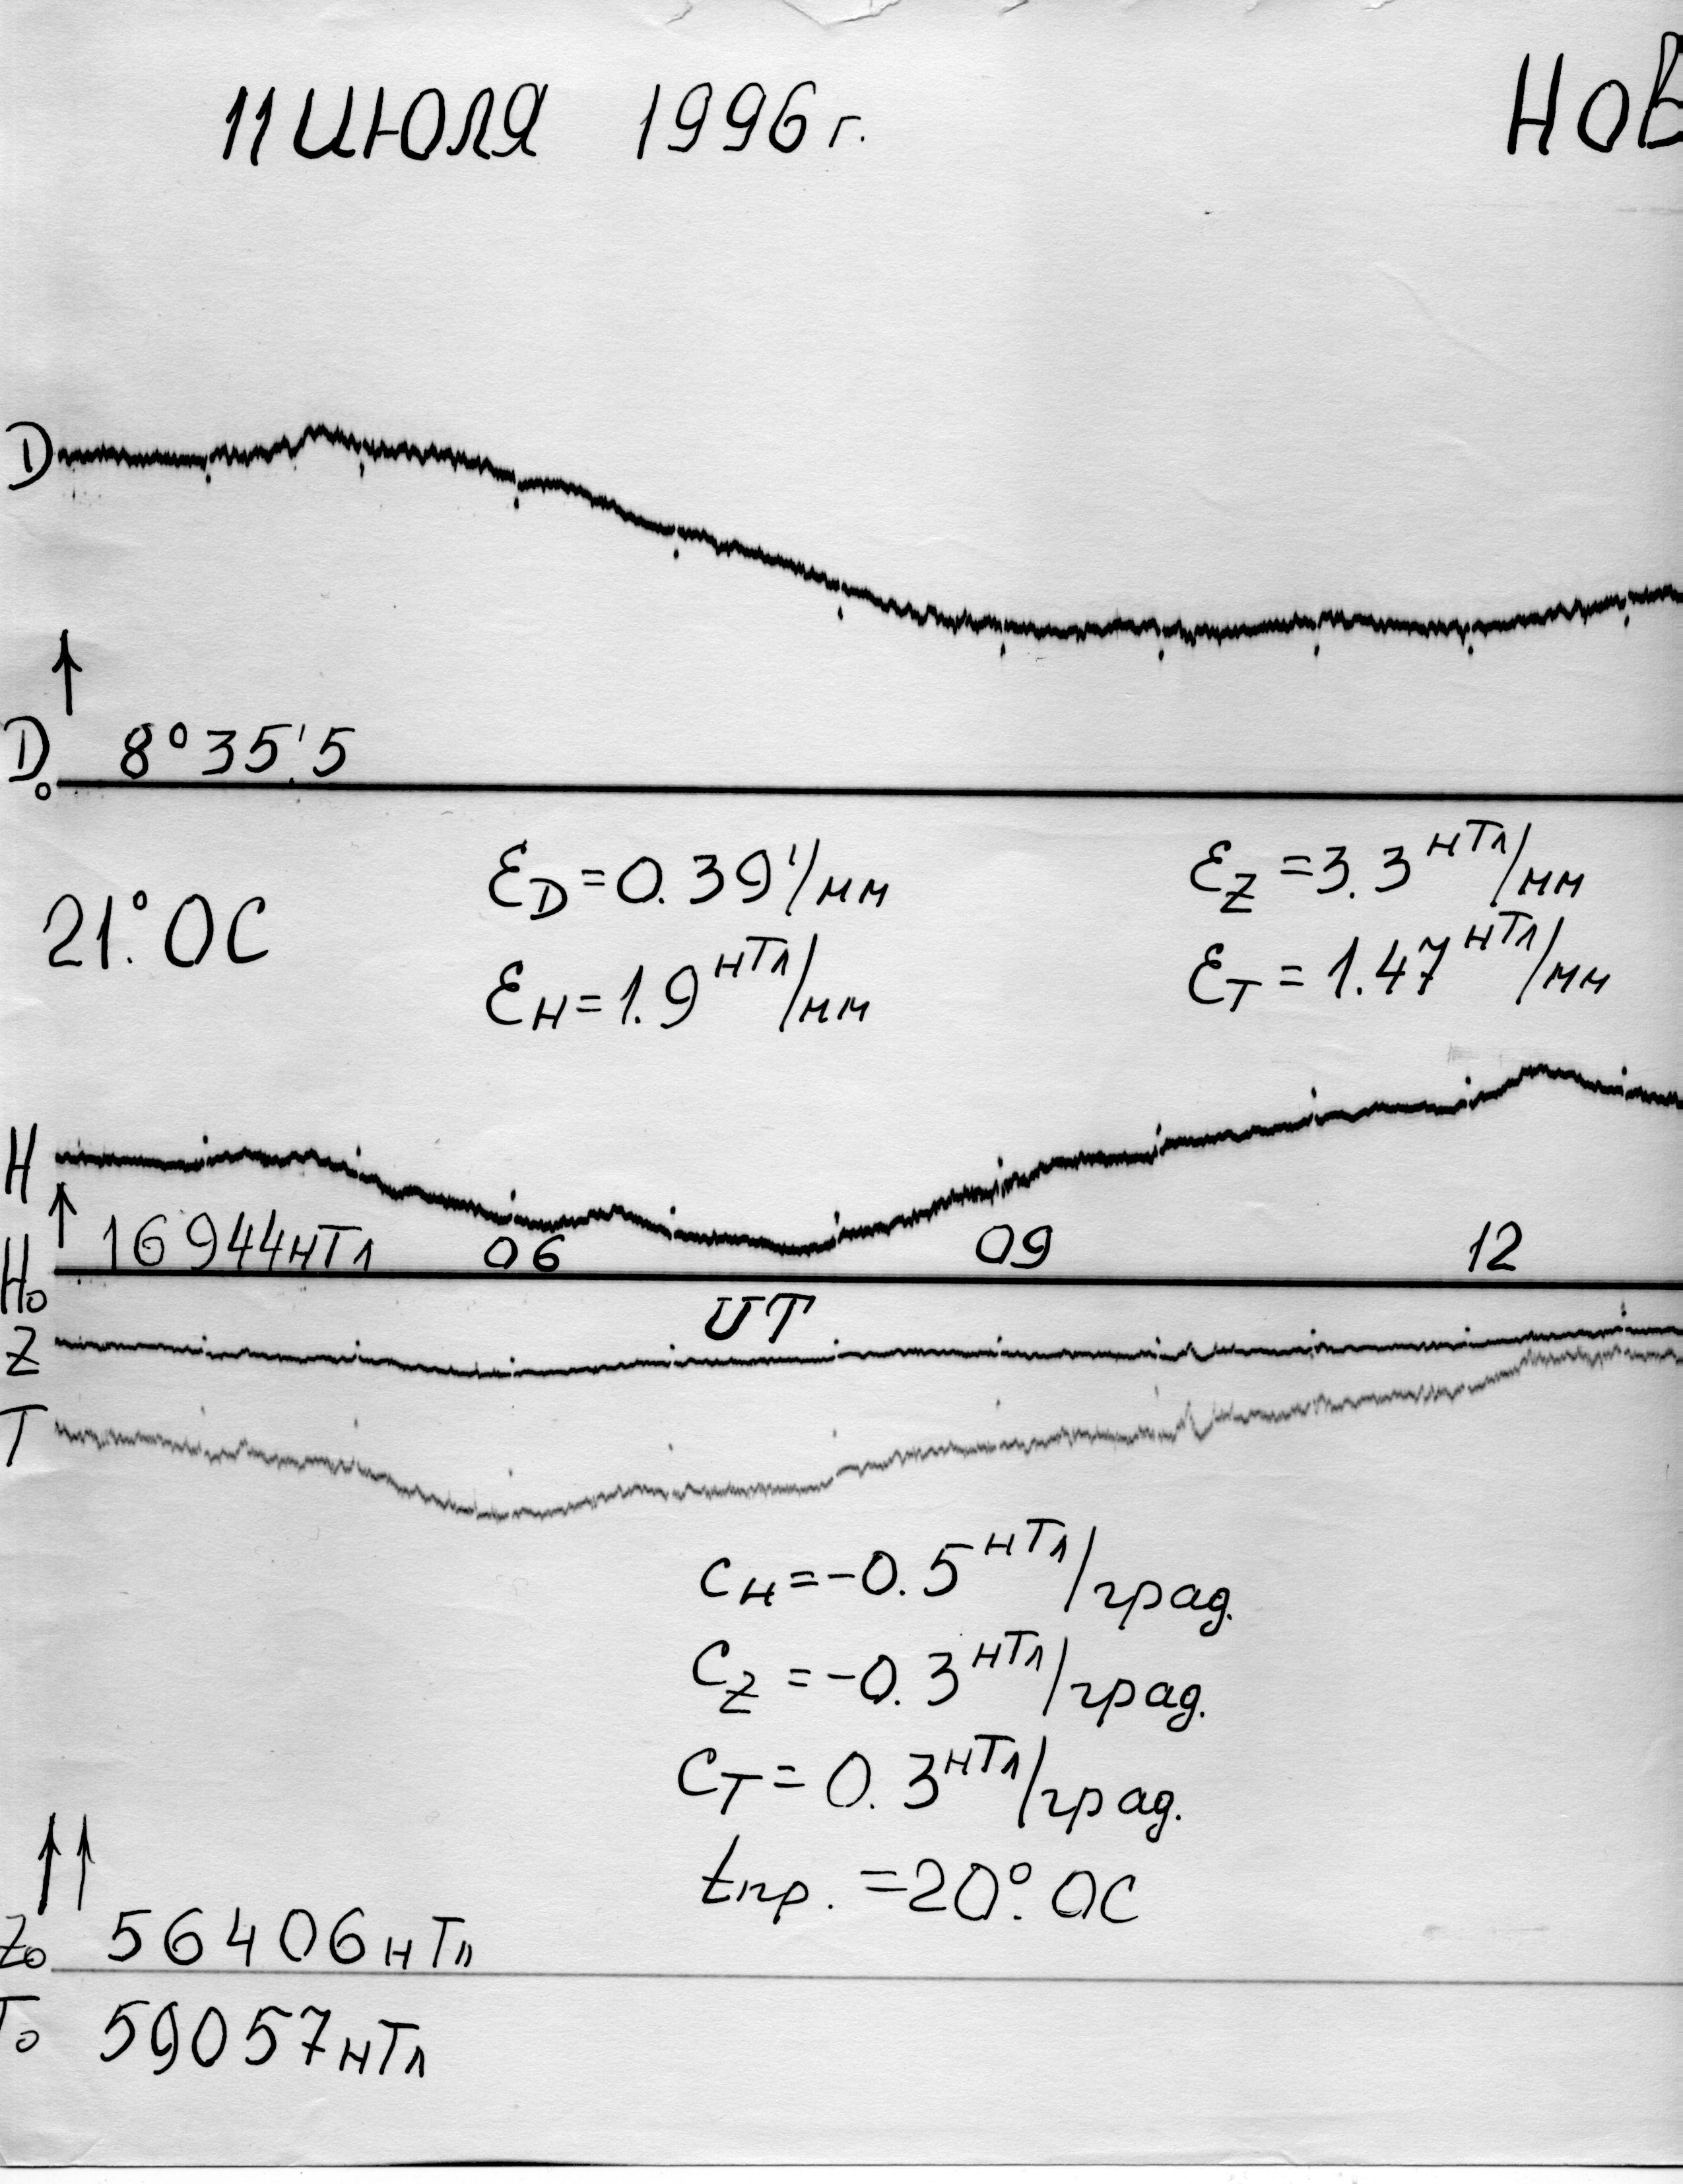 11 июля 1996 г. НОВ
D
D₀ 8°35.'5
21.°0С
ε_D = 0.39'/мм ε_Z = 3.3 нТл/мм
ε_H = 1.9 нТл/мм ε_T = 1.47 нТл/мм
H
H₀ 16944 нТл 06 09 12
UT
Z
T
C_H = -0.5 нТл/град.
C_Z = -0.3 нТл/град.
C_T = 0.3 нТл/град.
tпр. = 20.°0С
Z₀ 56406 нТл
T₀ 59057 нТл